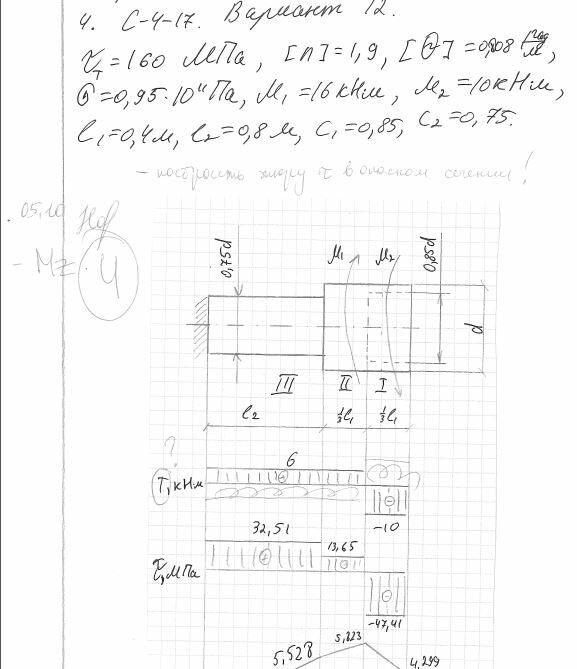 4. С-4-17. Вариант 12.
τт = 160 МПа, [n] = 1,9, [Θ] = рад/м,
G = 0,95·10⁴ Па, М₁ = 16 кНм, М₂ = 10 кНм,
l₁ = 0,4 м, l₂ = 0,8 м, С₁ = 0,85, С₂ = 0,75.
- построить эпюру τ в опасном сечении!
05.10
- Mz. 4
0,75d
М₁
М₂
0,85d
d
III
II
I
l₂
⅓l₁
⅓l₁
?
6
T, кНм
-10
32,51
13,65
τ, МПа
-47,41
5,528
5,823
4,299